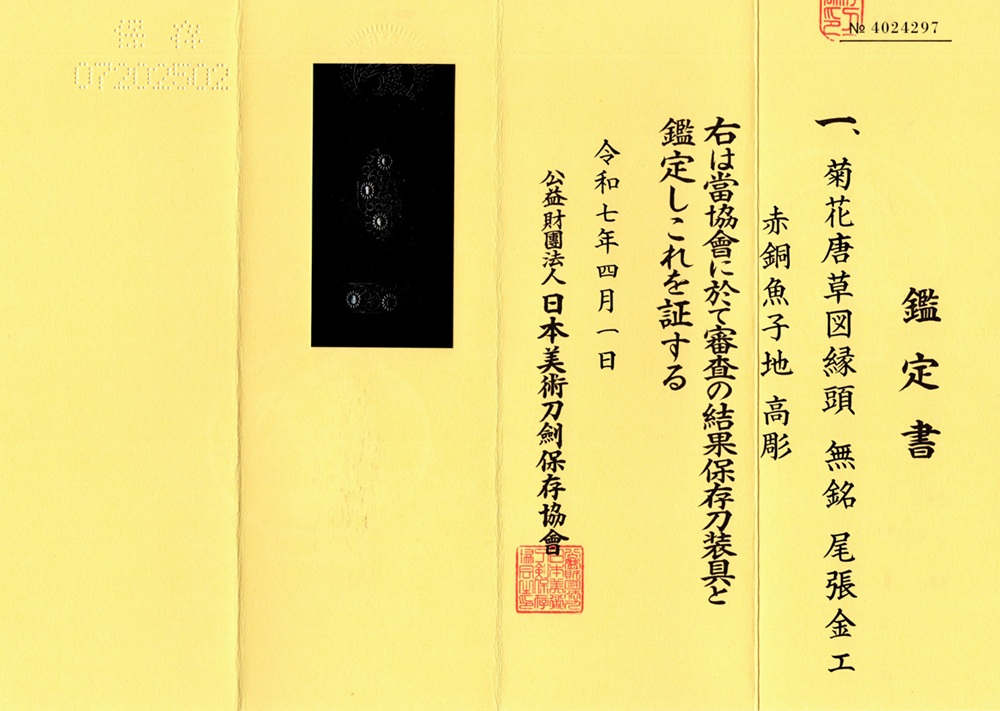 № 4024297
鑑定書
一、菊花唐草図縁頭 無銘 尾張金工
赤銅魚子地 高彫
右は當協會に於て審査の結果保存刀装具と
鑑定しこれを証する
令和七年四月一日
公益財團法人 日本美術刀劍保存協會
保存
07202502